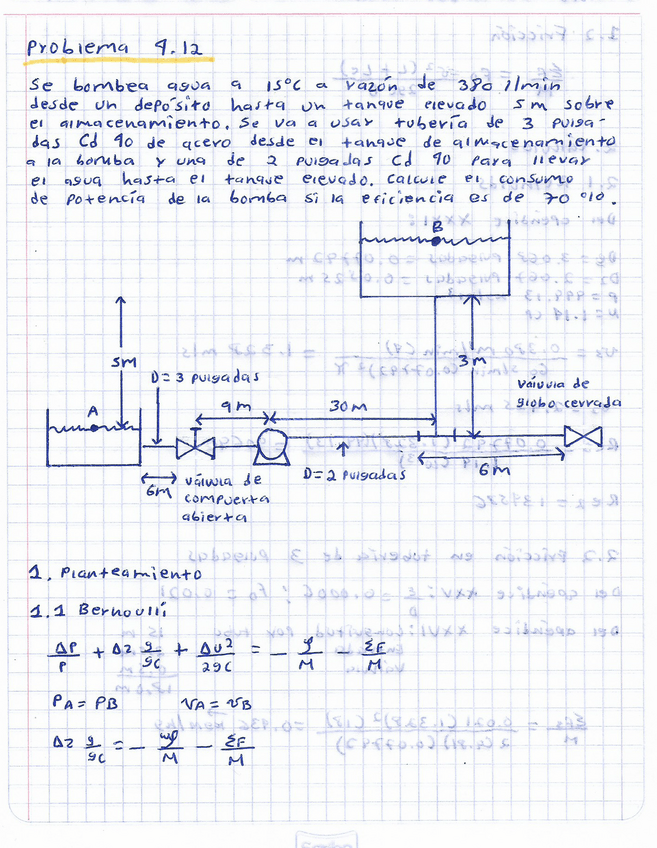 Problema 4.12
Se bombea agua a 15°C a razón de 380 l/min
desde un depósito hasta un tanque elevado 5m sobre
el almacenamiento. Se va a usar tubería de 3 pulga-
das Cd 40 de acero desde el tanque de almacenamiento
a la bomba y una de 2 pulgadas Cd 40 para llevar
el agua hasta el tanque elevado. Calcule el consumo
de potencia de la bomba si la eficiencia es de 70 %.
B
5m
D=3 pulgadas
3m
válvula de
globo cerrada
A
9m
30m
6m
válvula de
compuerta
abierta
D=2 pulgadas
6m
1. Planteamiento
1.1 Bernoulli
ΔP/ρ + Δz g/gc + Δu²/2gc = - 𝒫/M - ΣF/M
PA = PB vA = vB
Δz g/gc = - 𝒫/M - ΣF/M